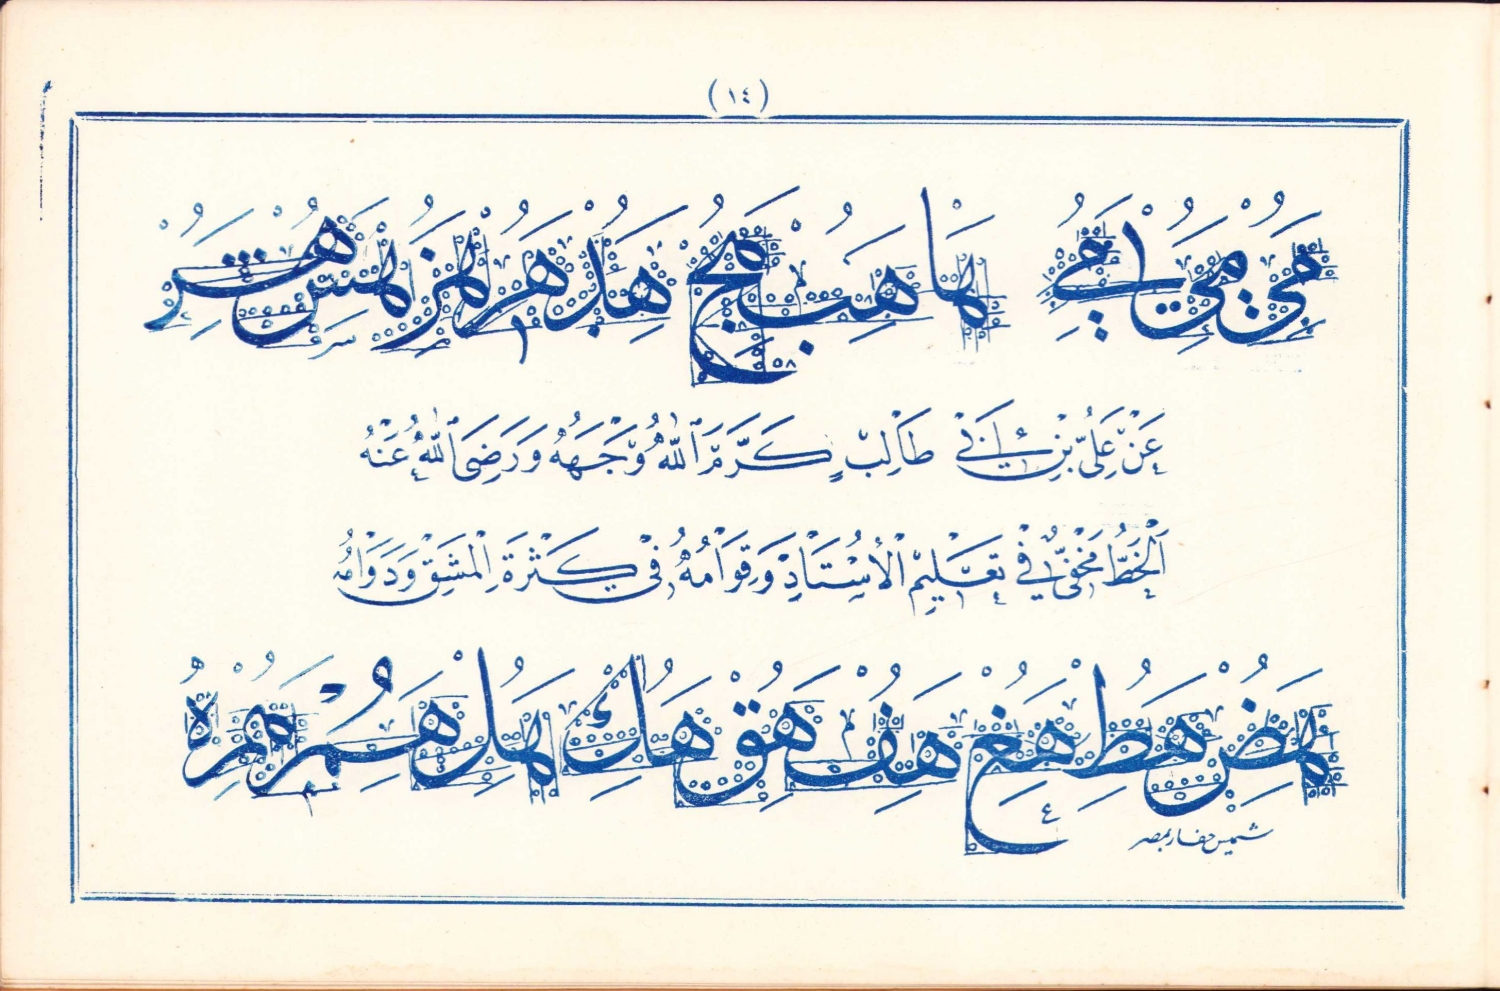 (١٤)
ها هب هج هد هر هز هس هش
عَنْ عَلِيِّ بْنِ أَبِي طَالِبٍ كَرَّمَ اللهُ وَجْهَهُ وَرَضِيَ اللهُ عَنْهُ
اَلْخَطُّ مَخْفِيٌّ فِي تَعْلِيمِ الْأُسْتَاذِ وَقِوَامُهُ فِي كَثْرَةِ الْمَشْقِ وَدَوَامُهُ
هض هط هع هف هق هك هل هم
شميس حفار بمصر